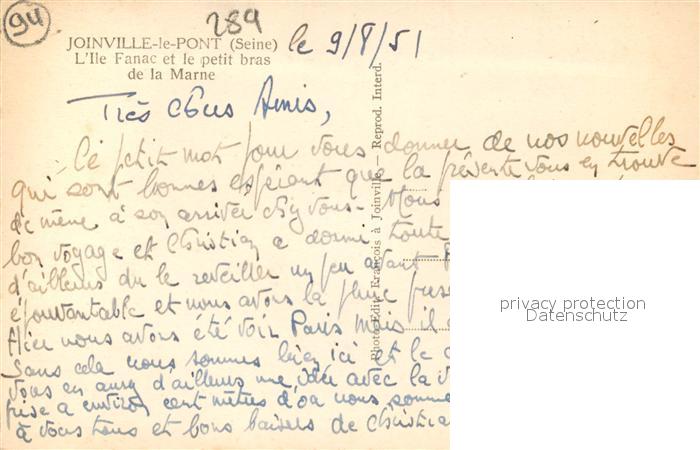 94
289
JOINVILLE-le-PONT (Seine)
L'Ile Fanac et le petit bras
de la Marne
le 9/8/51
Très chers Amis,
Ce petit mot pour vous donner de nos nouvelles
qui sont bonnes espérant que la présente vous en trouve
de même à son arrivée chez vous. Nous
bon voyage et Christian a dormi toute
d'ailleurs du le reveiller un peu avant
épouvantable et nous avons la pluie
Hier nous avons été voir Paris mais il
Sans cela nous sommes bien ici et le
Vous en aurez d'ailleurs une idée avec la
prise a environ cent mètres d'où nous somme
à vous tous et bons baisers de Christia
Photo-Edit. François à Joinville. — Reprod. Interd.
privacy protection
Datenschutz